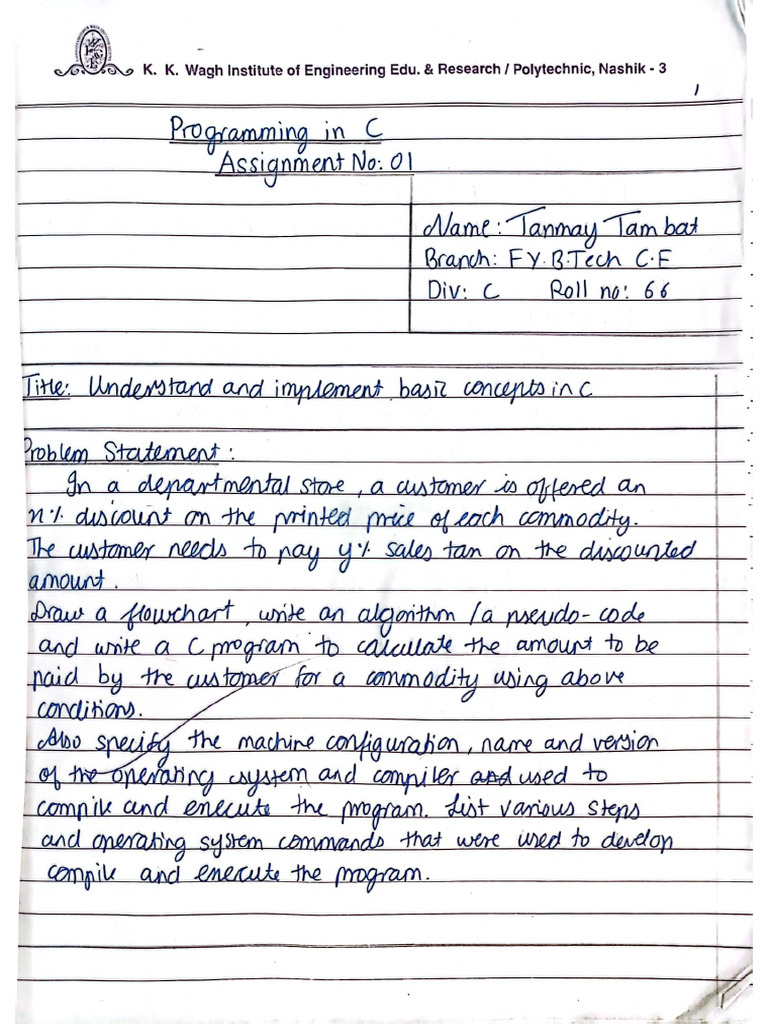 K. K. Wagh Institute of Engineering Edu. & Research / Polytechnic, Nashik - 3
1
Programming in C
Assignment No: 01
Name: Tanmay Tambat
Branch: F.Y. B.Tech C.E
Div: C Roll no: 66
Title: Understand and implement basic concepts in C
Problem Statement:
In a departmental store, a customer is offered an
n% discount on the printed price of each commodity.
The customer needs to pay y% sales tan on the discounted
amount.
Draw a flowchart, write an algorithm /a pseudo-code
and write a C program to calculate the amount to be
paid by the customer for a commodity using above
conditions.
Also specify the machine configuration, name and version
of the operating system and compiler and used to
compile and enecute the program. List various steps
and operating system commands that were used to develop
compile and enecute the program.